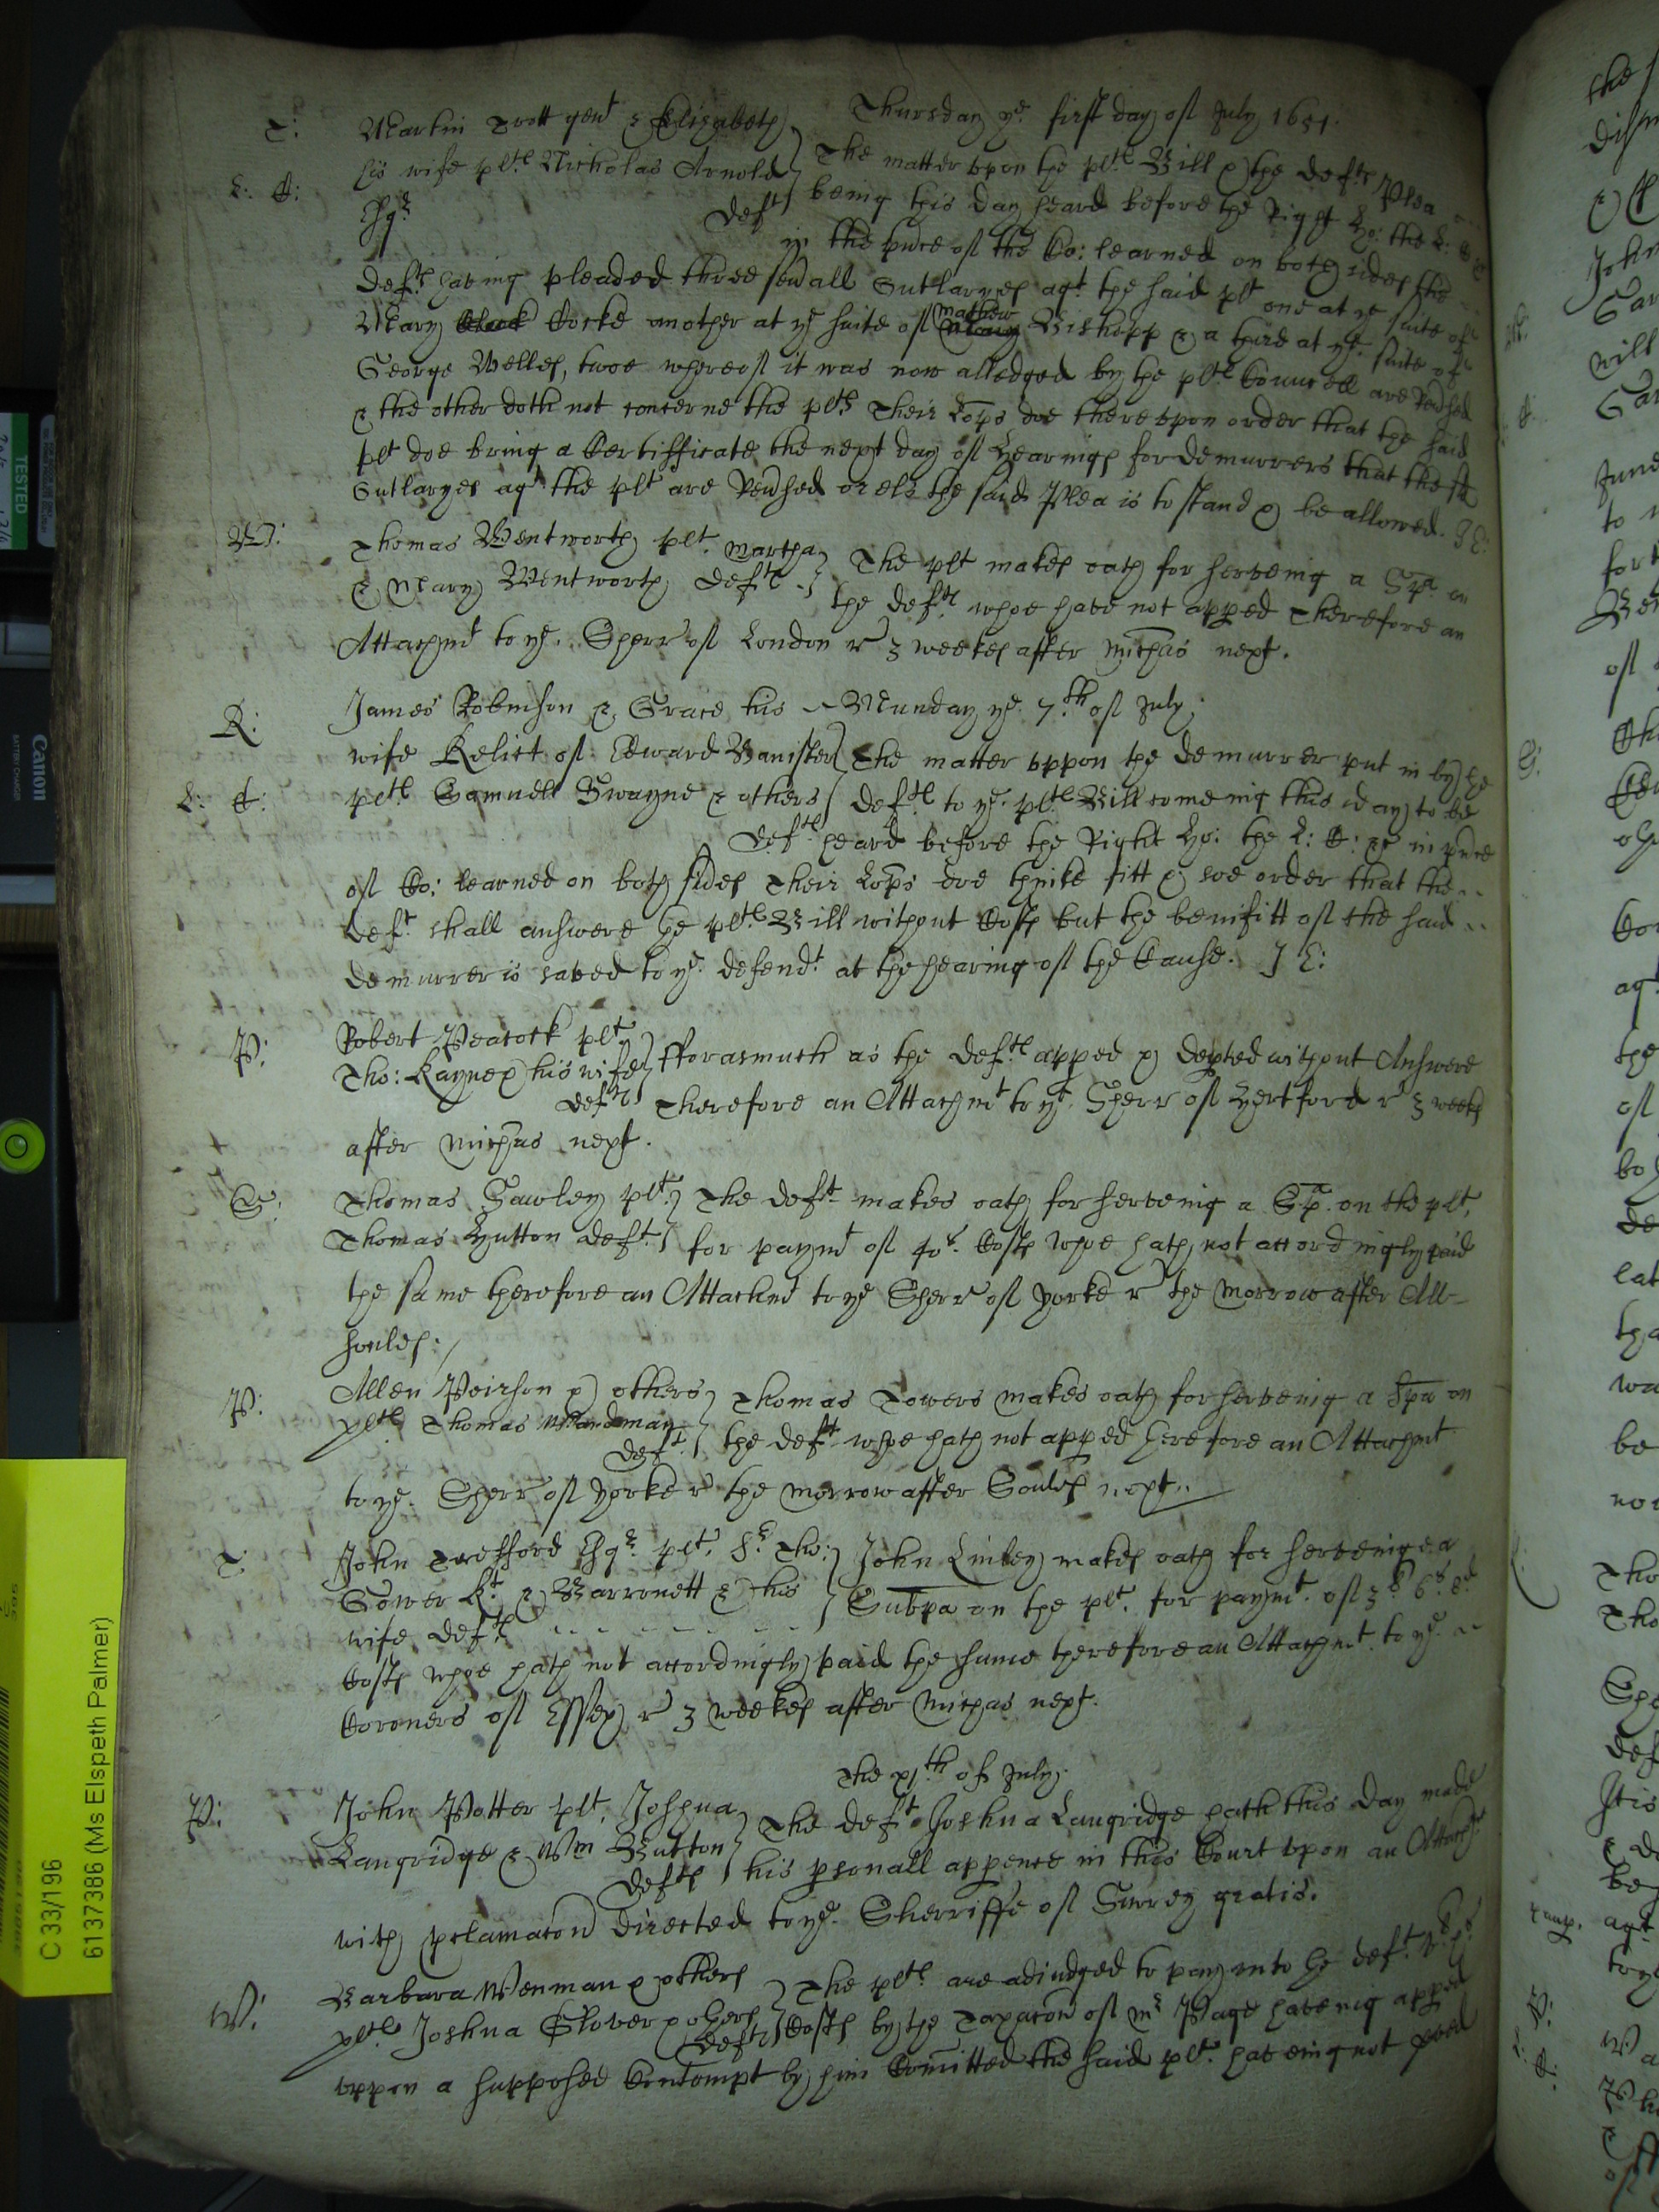 Thursday ye first day of July 1651.
T: Martin Trott gent & Elizabeth
his wife plts Nicholas Arnold
Esqr Deft
The matter upon the plts Bill & the defts Plea
L: C: being this day heard before the Right Ho: the L: C
in the pnce of the Co: learned on both sides the
deft haveing pleaded three sevall Outlaryes agt the said plt one at ye suite of
Mary Cocke another at ye suite of mathew Bishopp & a third at ye suite of
George Welles, twoe whereof it was now alledged by the plts Councell are Revsed
& the other doth not concerne the plts Their Lops doe thereupon order that the said
plt doe bring a Certifficate the next day of Hearinges for demurrers that the sd
Outlaryes agt the plt are Revsed or els the said Plea is to stand & be allowed. J E:
W: Thomas Wentworth plt Martha
& Mary Wentworth Defts
The plt makes oath for serveing a Spa on
the defts whoe have not apped Therefore an
Attachmt to ye Sherr of London r 3 weekes after Michas next.
R: James Robinson & Grace his
wife Relict of Edward Banister
L: C: plts Samuell Swayne & others
Defts
Munday ye 7th of July
The matter uppon the demurrer put in by the
defts to ye plts Bill comeing this day to be
heard before the Right Ho: the L: C: & in pnce
of Co: learned on both sides Their Lops doe thinke fitt & soe order that the
deft shall answere the plts Bill without Costs but the benifitt of the said
demurrer is saved to ye defendt at the hearing of the Cause. J E:
P: Robert Peacock plt
Tho: Kayne & his wife
defts
fforasmuch as the defts apped & depted without Answere
Therefore an Attachmt to ye Sherr of Hertford r 3 weeks
after Michas next.
S: Thomas Sawley plt
Thomas Hutton deft
The deft makes oath for serveing a Spa on the plt
for paymt of 40s Costs whoe hath not accordingly paid
the same therefore an Attachmt to ye Sherr of Yorke r the morrow after All
soules:
P: Allen Peirson & others
plts Thomas
Deft
Thomas Towers makes oath for serveing a Spa on
the deft whoe hath not apped therefore an Attachmt
to ye Sherr of Yorke r the morrow after Soules next
T: John Trefford Esqr plt Sr Tho:
Gower Kt & Barronett & his
wife defts
John Linley makes oath for serveinge a
Subpa on the plt for paymt of 3li 6s 8d
Costs whoe hath not accordingly paid the same therefore an Attachmt to ye
Coroners of Essex r 3 weekes after Michas next.
The xith of July.
P: John Potter plt Joshua
Langridge & Wm Button
Defts
The deft Joshua Langridge hath this day made
his psonall appence in this Court upon an Attachmt
with pclamacon directed to ye Sherriffe of Surrey gratis.
W: Barbara Wenman & others
plts Joshua Glover & others
Defts
The plts are adiudged to pay unto the deft
Costs by the Taxacon of Mr Page haveing apped
uppon a supposed Contempt by him Comitted the said plt haveing not pved
TESTED
Canon
BATTERY CHARGER
C 33/196
61373786 (Ms Elspeth Palmer)